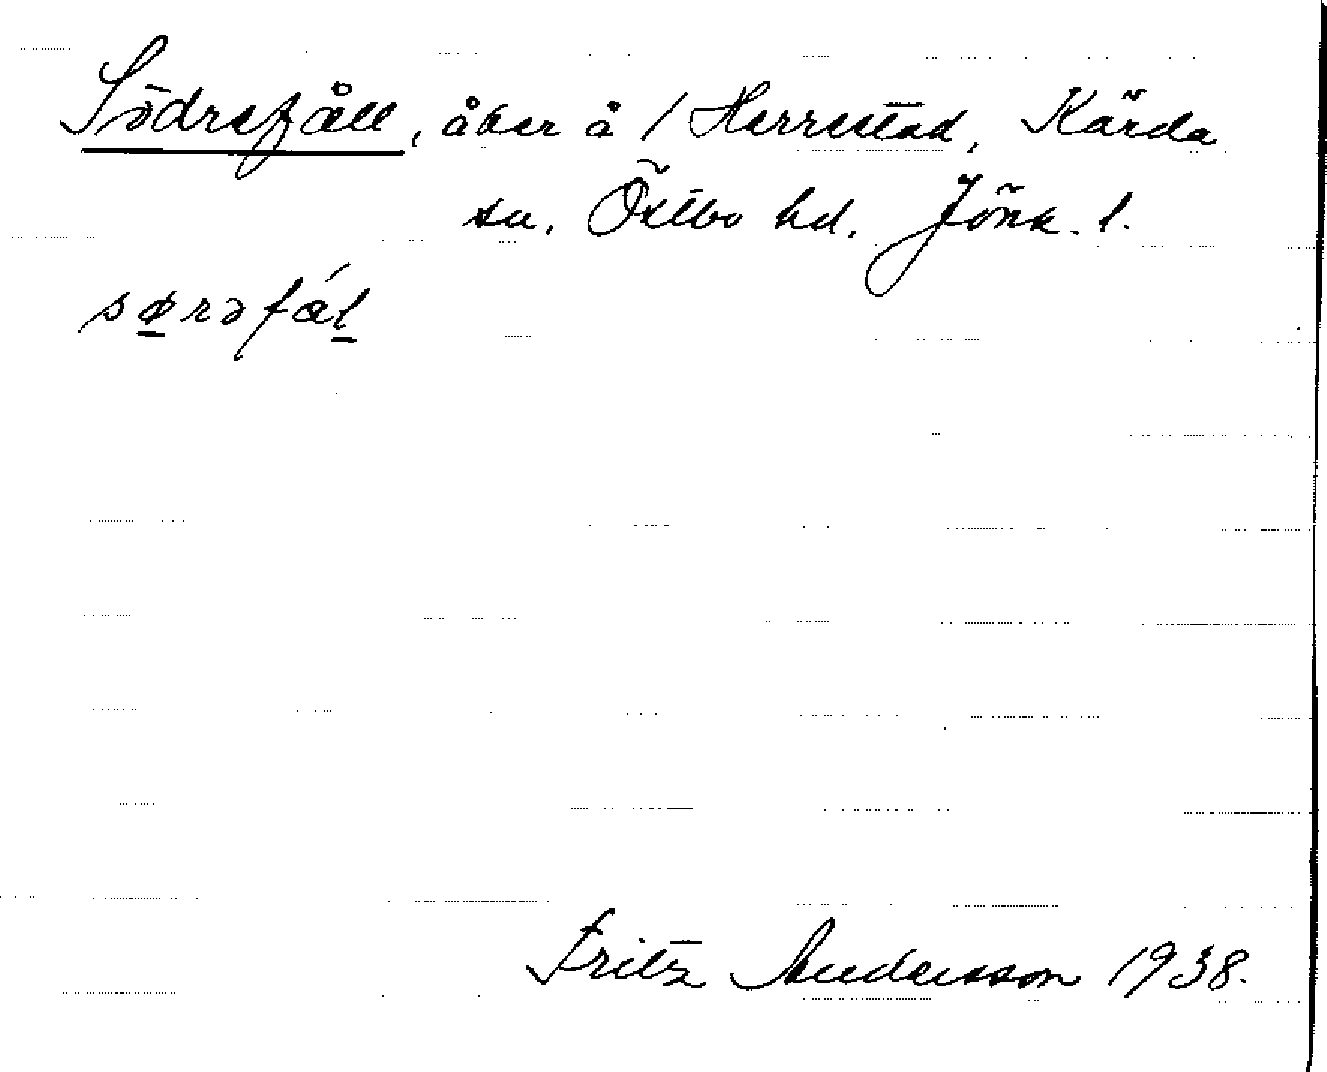 Södrefåll, åker å / Herrestad, Kärda
sn. Östbo hd. Jönk. l.
sørəfál
Fritz Andersson 1938.